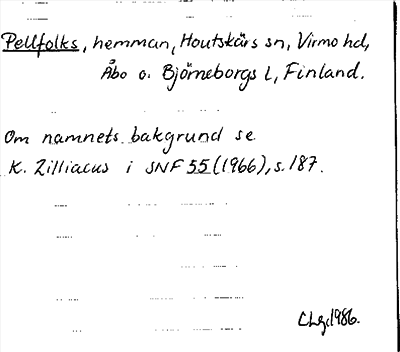 Pellfolks, hemman, Houtskärs sn, Virmo hd,
Åbo o. Björneborgs l, Finland.
Om namnets bakgrund se
K. Zilliacus i SNF 55 (1966), s. 187.
CLg. 1986.